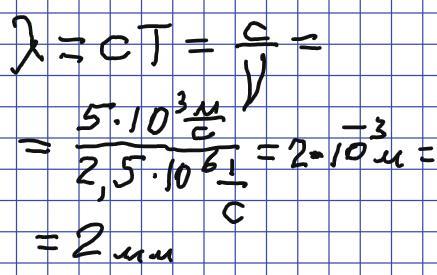 λ = cT = c/ν =
= (5·10³ м/с)/(2,5·10⁶ 1/с) = 2·10⁻³ м =
= 2 мм